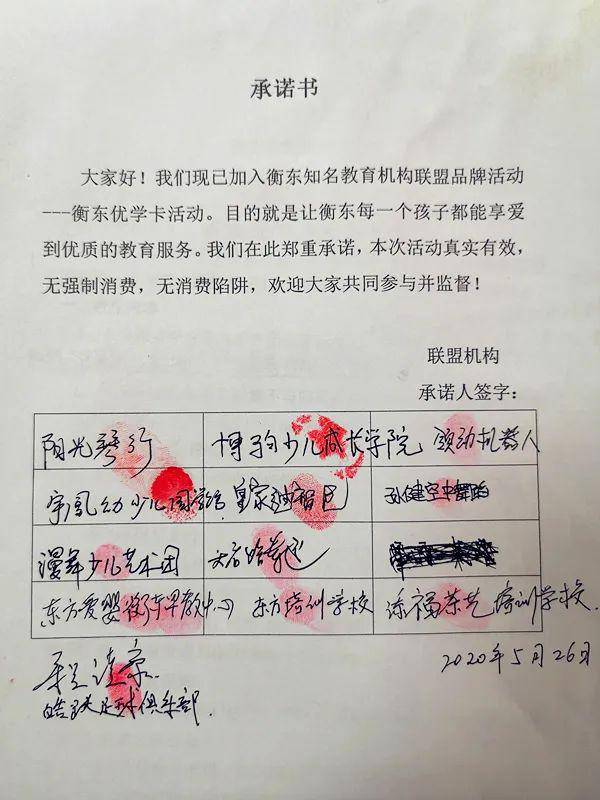 承诺书
大家好！我们现已加入衡东知名教育机构联盟品牌活动
---衡东优学卡活动。目的就是让衡东每一个孩子都能享爱
到优质的教育服务。我们在此郑重承诺，本次活动真实有效，
无强制消费，无消费陷阱，欢迎大家共同参与并监督！
联盟机构
承诺人签字：
阳光琴行 博豹少儿成长学院 颂动机器人
少儿国学馆 皇家迪智尼
漫舞少儿艺术团
东方爱婴衡东早教中心 东方培训学校 添福茶艺培训学校
足球俱乐部
2020年5月26日